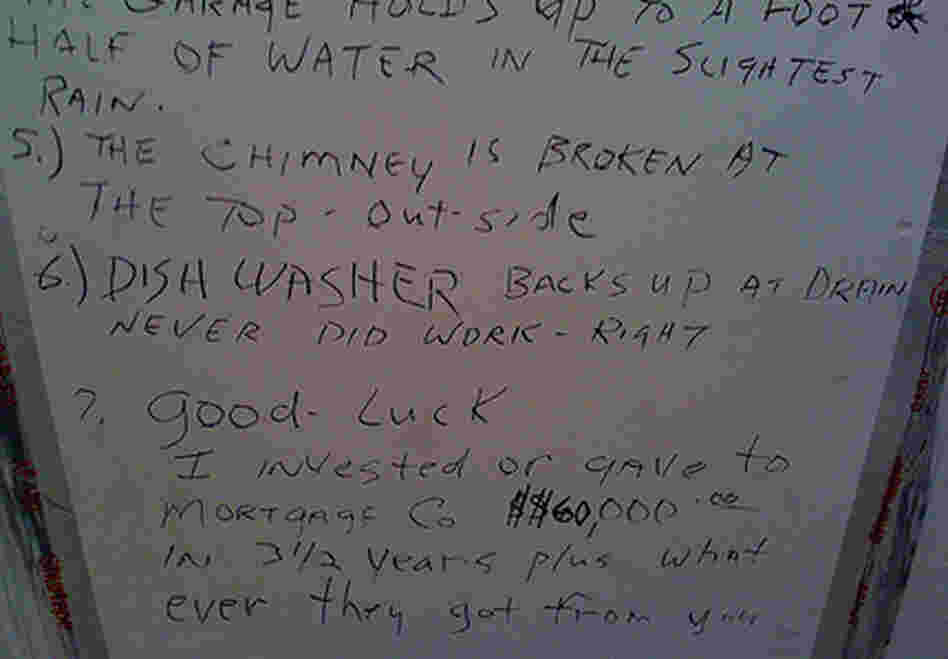 THE GARAGE HOLDS UP TO A FOOT &
HALF OF WATER IN THE SLIGHTEST
RAIN.
5.) THE CHIMNEY IS BROKEN AT
THE TOP - OUT-SIDE
6.) DISH WASHER BACKS UP AT DRAIN
NEVER DID WORK - RIGHT
7. Good - Luck
I invested or gave to
MORTGAGE Co $$60,000.00
IN 3 1/2 years plus what
ever they got from you